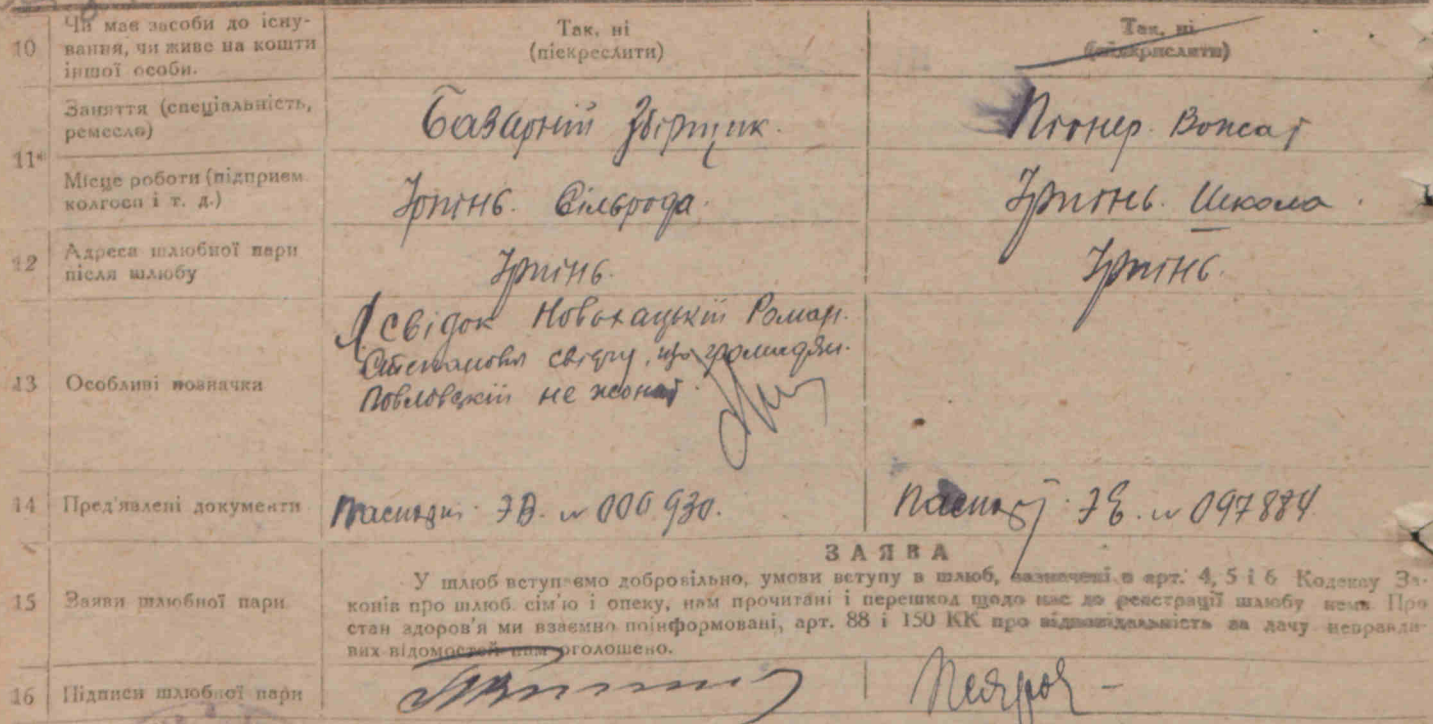 10 Чи має засоби до існу-
вання, чи живе на кошти
іншої особи.
Так, ні
(піекреслити)
Так, ні
(підкрислити)
11
Заняття (спеціальність,
ремесло)
Базарній Збірщик.
Піонер. Вожат
Місце роботи (підприєм.
колгосп і т. д.)
Ірпінь. Сільрода.
Ірпінь. Школа.
12 Адреса шлюбної пари
після шлюбу
Ірпінь.
Ірпінь.
13 Особливі позначки
Я свідок Роман.
що громадян.
Повловскій не жонат.
14 Пред'явлені документи
Паспорт ЭВ. № 000930.
Паспорт ЭЕ. № 097884
15 Заяви шлюбної пари
ЗАЯВА
У шлюб вступаємо добровільно, умови вступу в шлюб, зазначені в арт. 4, 5 і 6 Кодексу За-
конів про шлюб. сім'ю і опеку, нам прочитані і перешкод щодо нас до реєстрації шлюбу нема Про
стан здоров'я ми взаємно поінформовані, арт. 88 і 150 КК про відповідальність за дачу неправди-
вих відомостей нам оголошено.
16 Підписи шлюбної пари